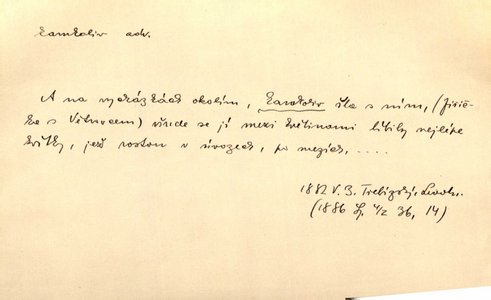 kamkoliv adv.
A na vycházkách okolím, kamkoliv šla s ním, (Jiřič-
ka s Větrovcem) všude se jí mezi květinami líbily nejlépe
kvítky, jež rostou v úvozech, po mezích, ....
1882 V. B. Třebízský, Levoh.
(1886 Sp. 4/2 36, 14)